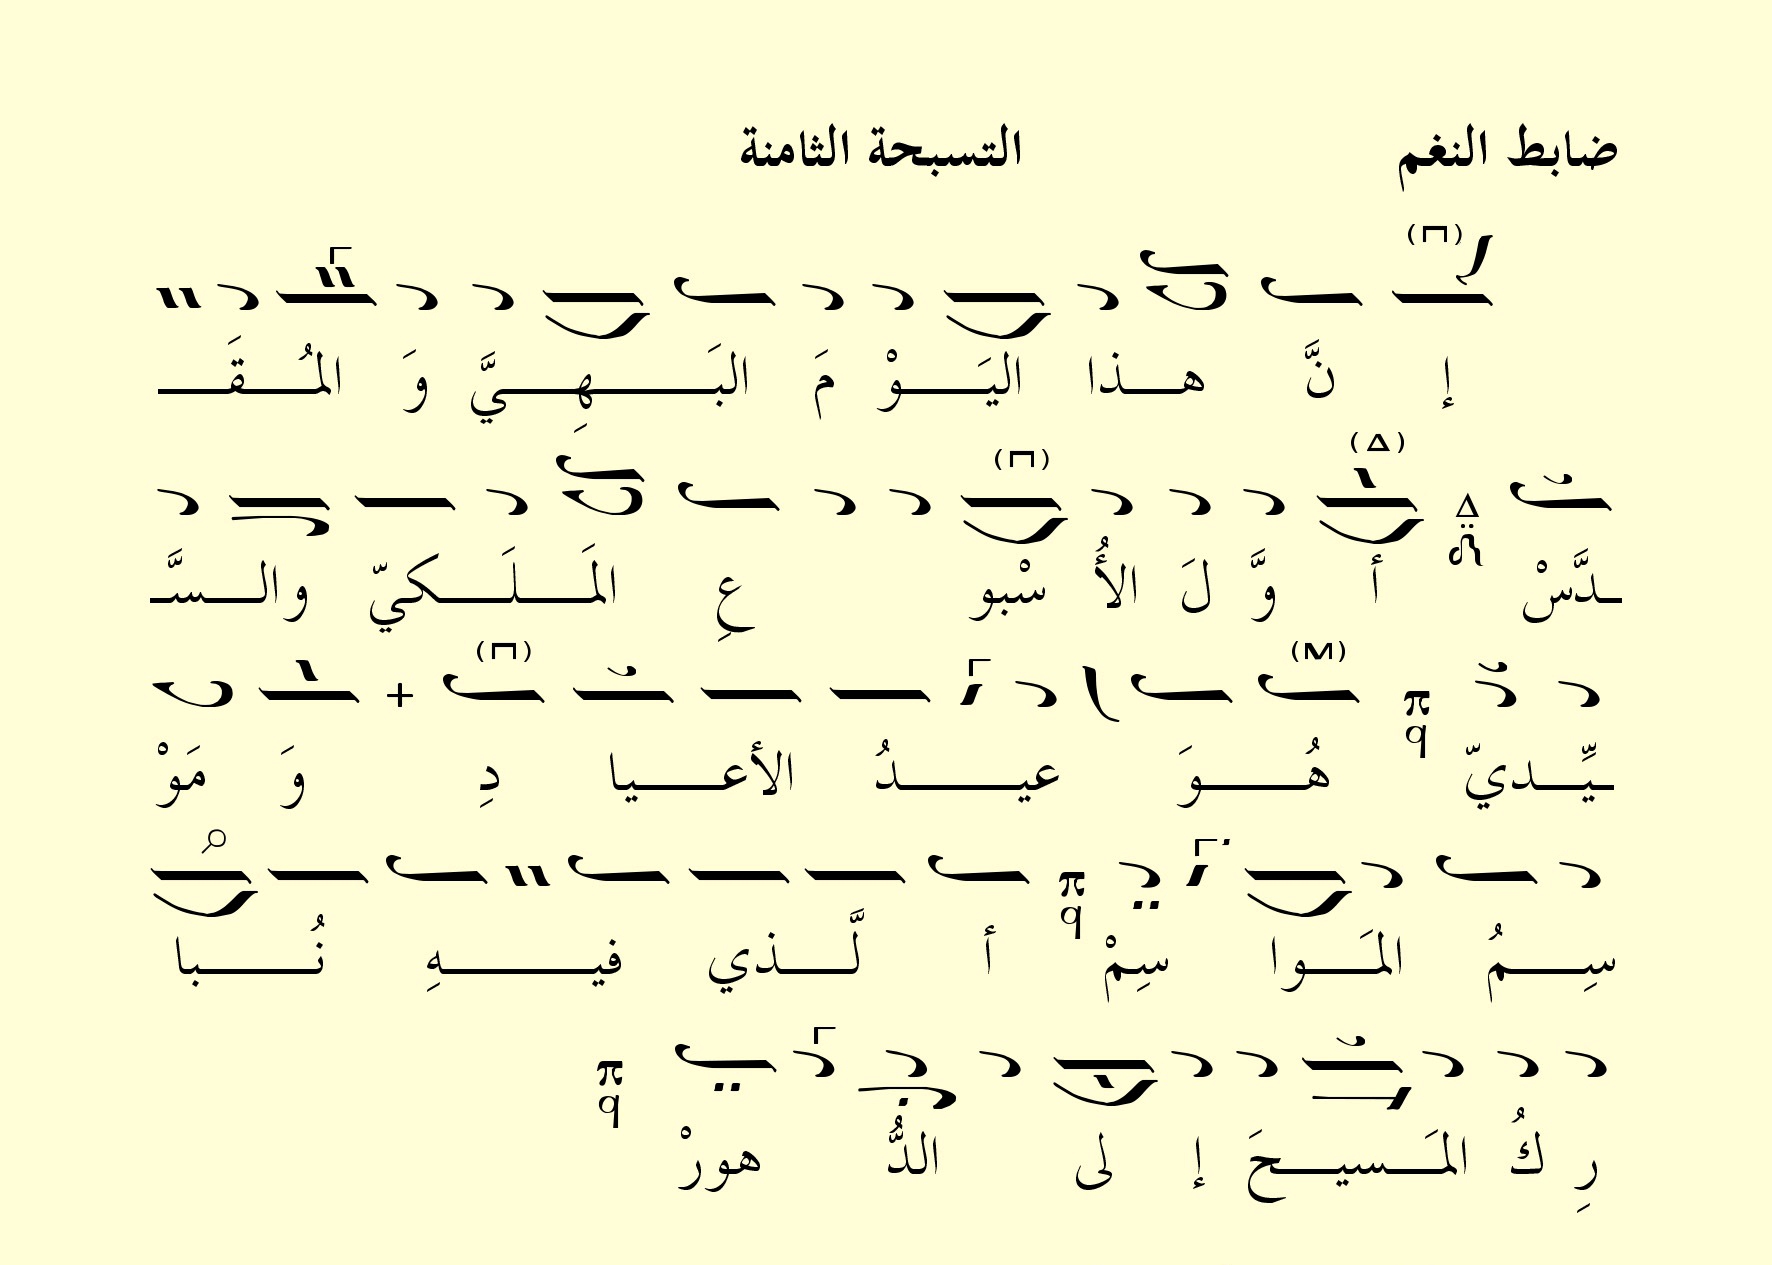 ضابط النغم التسبحة الثامنة
إ نَّ هـــذا اليَـــوْ مَ البَـــهِـــيَّ وَ المُـــقَـــ
ـدَّسْ أ وَّ لَ الأُ سْبو عِ المَـــلَـــكيّ والـــسَّـ
ـيِّـــديّ هُـــوَ عيـــدُ الأعـــيا دِ وَ مَوْ
سِـــمُ المَـــوا سِمْ أ لَّـــذي فيـــهِ نُـــبا
رِ كُ المَـــسيـــحَ إ لى الدُّ هورْ